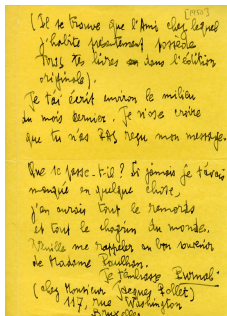 [1950]
(Il se trouve que l'Ami chez lequel
j'habite présentement possède
TOUS tes livres ou dans l'édition
originale).
Je t'ai écrit environ le milieu
du mois dernier. Je n'ose croire
que tu n'as PAS reçu mon message.
Que se passe-t-il ? Si jamais je t'avais
manqué en quelque chose,
j'en aurais tout le remords
et tout le chagrin du monde.
Veuille me rappeler au bon souvenir
de Madame Paulhan.
Je t'embrasse
(chez Monsieur Jacques Collet)
117, rue Washington
Bruxelles